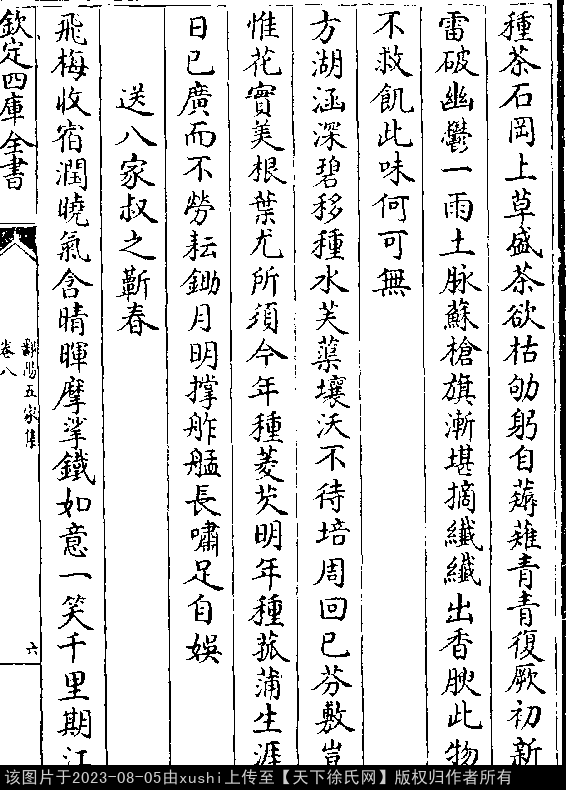 種茶石岡上草盛茶欲枯劬躬自薅薙青青復厥初新
雷破幽鬱一雨土脉蘇槍旗漸堪摘纖纖出香腴此物
不救飢此味何可無
方湖涵深碧移種水芙蕖壤沃不待培周回已芬敷豈
惟花實美根葉尤所須今年種菱芡明年種菰蒲生涯
日已廣而不勞耘鋤月明撑舴艋長嘯足自娛
送八家叔之蘄春
飛梅收宿潤曉氣含晴暉摩挲鐵如意一笑千里期江
欽定四庫全書
鄱陽五家集
卷八
六
该图片于2023-08-05由xushi上传至【天下徐氏网】版权归作者所有